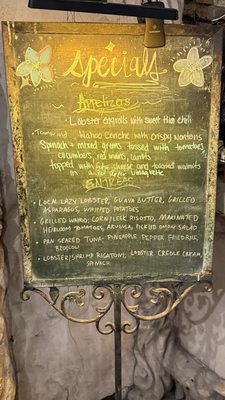 Specials
Appetizers
Lobster eggrolls with sweet thai chili
Tamarind Wahoo Ceviche with crispy wontons
Spinach + mixed greens tossed with tomatoes
cucumbers, red onions, carrots
topped with feta cheese and toasted walnuts
in a vinaigrette
ENTREES
• LOCAL LAZY LOBSTER, GUAVA BUTTER, GRILLED
ASPARAGUS, WHIPPED POTATOES
• GRILLED WAHOO: CORN/LEEK RISOTTO, MARINATED
HEIRLOOM TOMATOES, ARUGULA, PICKLED ONION SALAD
• PAN SEARED TUNA: PINEAPPLE PEPPER FRIED RICE,
BROCCOLI
• LOBSTER/SHRIMP RIGATONI; LOBSTER CREOLE CREAM,
SPINACH